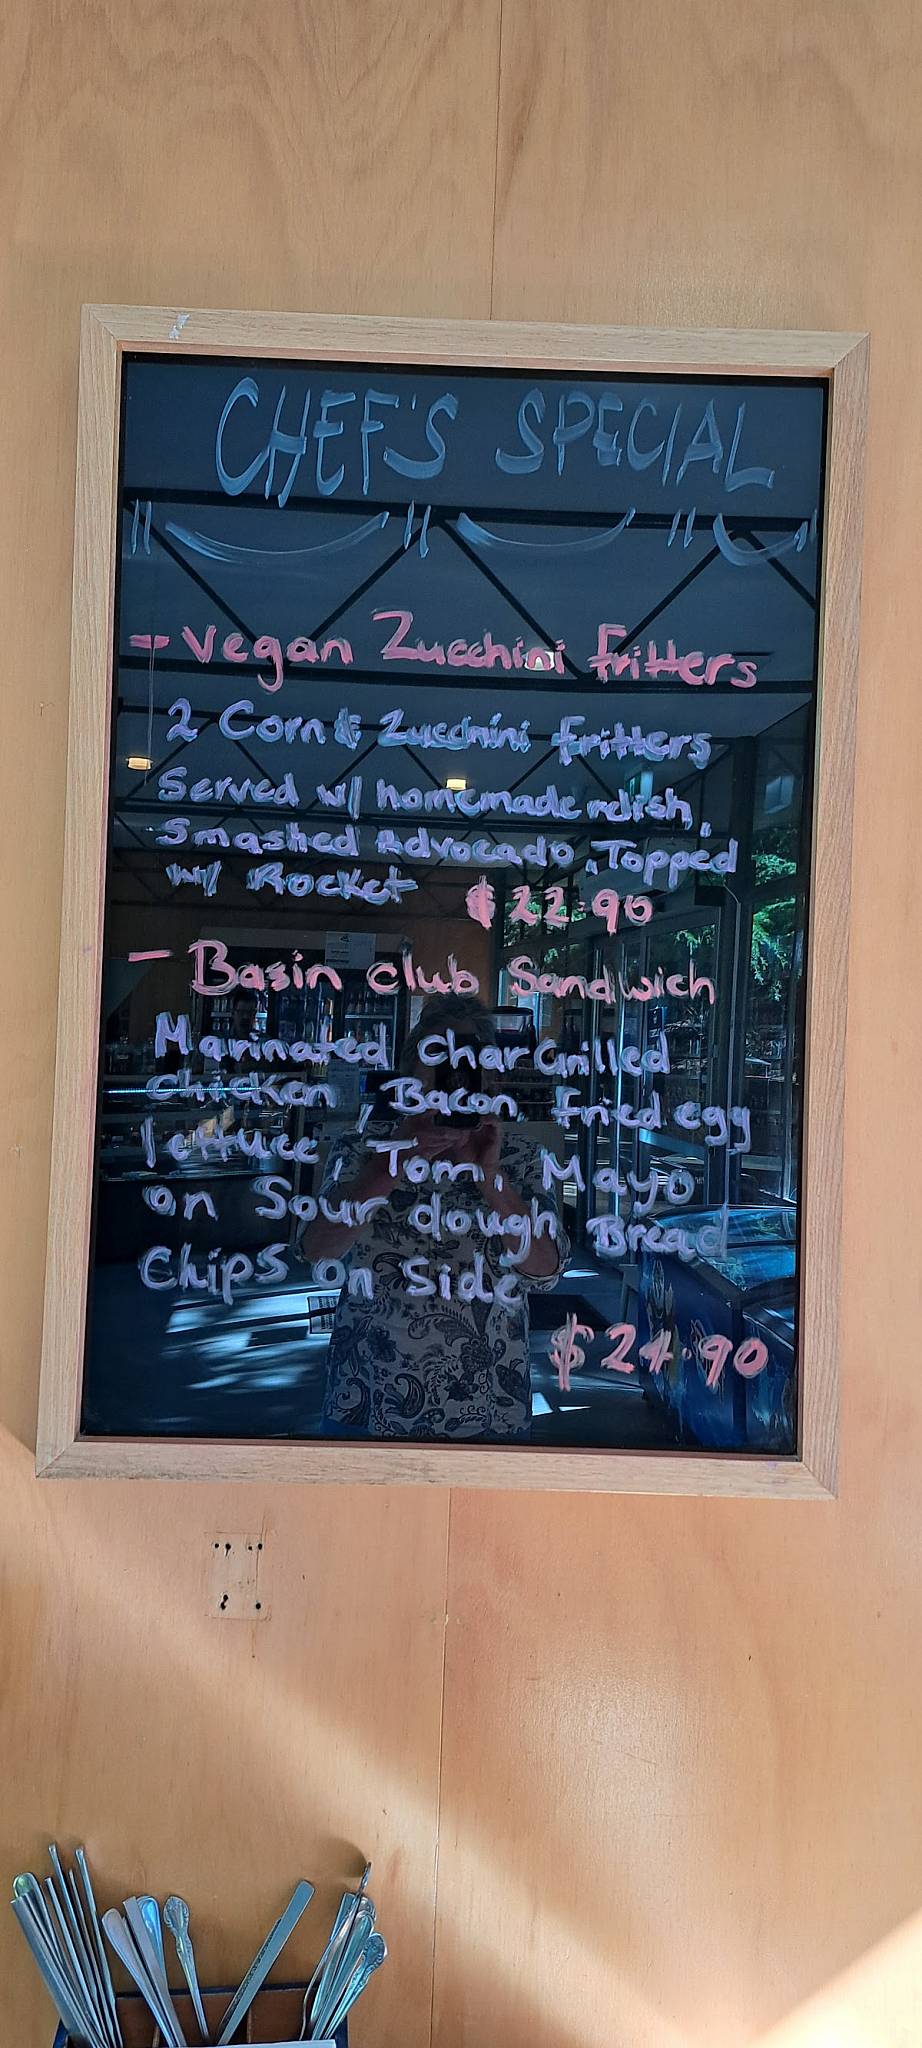 CHEF'S SPECIAL
- Vegan Zucchini Fritters
2 Corn & Zucchini Fritters
Served w/ homemade relish,
Smashed Advocado, Topped
w/ Rocket $22.90
- Basin Club Sandwich
Marinated Char Grilled
Chicken, Bacon, Fried egg
lettuce, Tom, Mayo
on Sour dough Bread
Chips on Side
$24.90